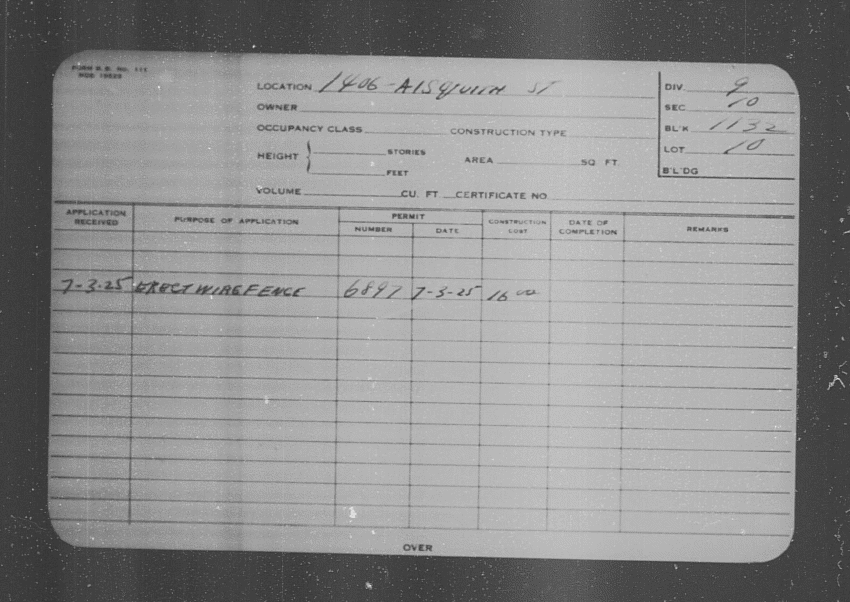 FORM B. B. No. 111
LOCATION 1406 - AISQUITH ST
DIV. 9
OWNER
SEC 10
OCCUPANCY CLASS CONSTRUCTION TYPE
BL'K 1132
HEIGHT STORIES AREA SQ FT.
LOT 10
FEET
B'L'DG
VOLUME CU. FT. CERTIFICATE NO
APPLICATION RECEIVED PURPOSE OF APPLICATION PERMIT CONSTRUCTION COST DATE OF COMPLETION REMARKS
NUMBER DATE
7-3-25 ERECT WIRE FENCE 6897 7-3-25 16 00
OVER